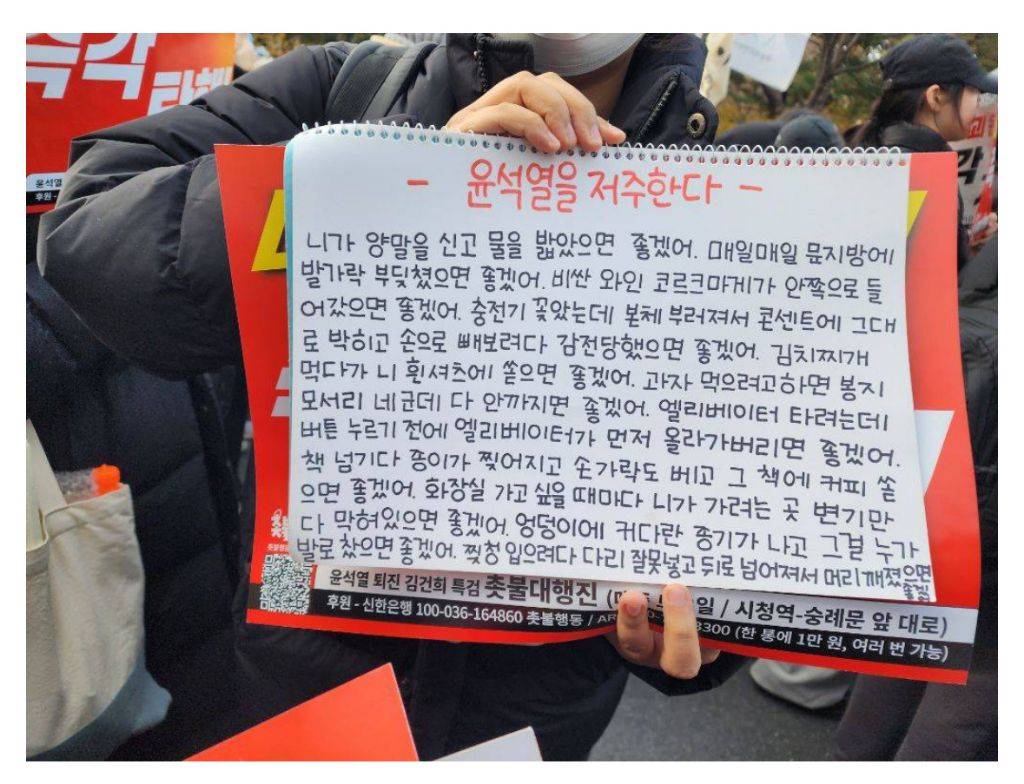 즉각
탄핵
윤석열
후원 -
- 윤석열을 저주한다 -
니가 양말을 신고 물을 밟았으면 좋겠어. 매일매일 문지방에
발가락 부딪쳤으면 좋겠어. 비싼 와인 코르크마게가 안쪽으로 들
어갔으면 좋겠어. 충전기 꽂았는데 본체 부러져서 콘센트에 그대
로 박히고 손으로 빼보려다 감전당했으면 좋겠어. 김치찌개
먹다가 니 흰셔츠에 쏟으면 좋겠어. 과자 먹으려고하면 봉지
모서리 네군데 다 안까지면 좋겠어. 엘리베이터 타려는데
버튼 누르기 전에 엘리베이터가 먼저 올라가버리면 좋겠어.
책 넘기다 종이가 찢어지고 손가락도 베고 그 책에 커피 쏟
으면 좋겠어. 화장실 가고 싶을 때마다 니가 가려는 곳 변기만
다 막혀있으면 좋겠어. 엉덩이에 커다란 종기가 나고 그걸 누가
발로 찼으면 좋겠어. 찢청 입으려다 다리 잘못넣고 뒤로 넘어져서 머리 깨졌으면
좋겠어
윤석열 퇴진 김건희 특검 촛불대행진 / 시청역-숭례문 앞 대로)
후원 - 신한은행 100-036-164860 촛불행동 / 3300 (한 통에 1만 원, 여러 번 가능)